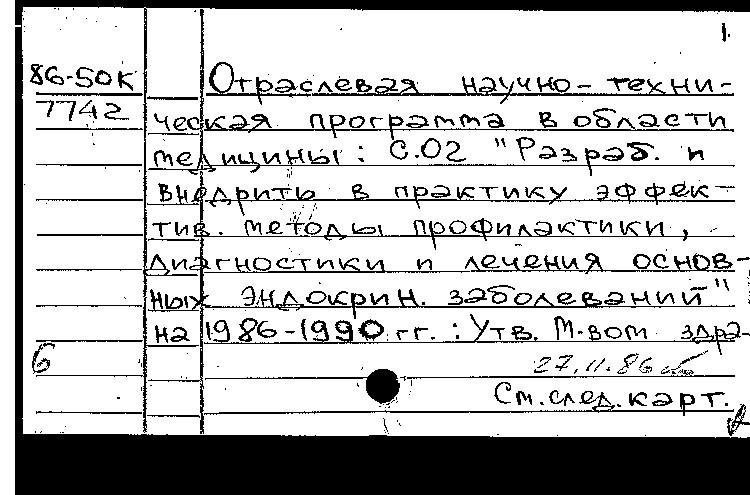 1.
86-50К Отраслевая научно-техни-
7742 ческая программа в области
медицины: С.02 "Разраб. и
внедрить в практику эффек-
тив. методы профилактики,
диагностики и лечения основ-
ных эндокрин. заболеваний"
на 1986-1990 гг.: Утв. М-вом здра-
6 27.11.86
См. след. карт.